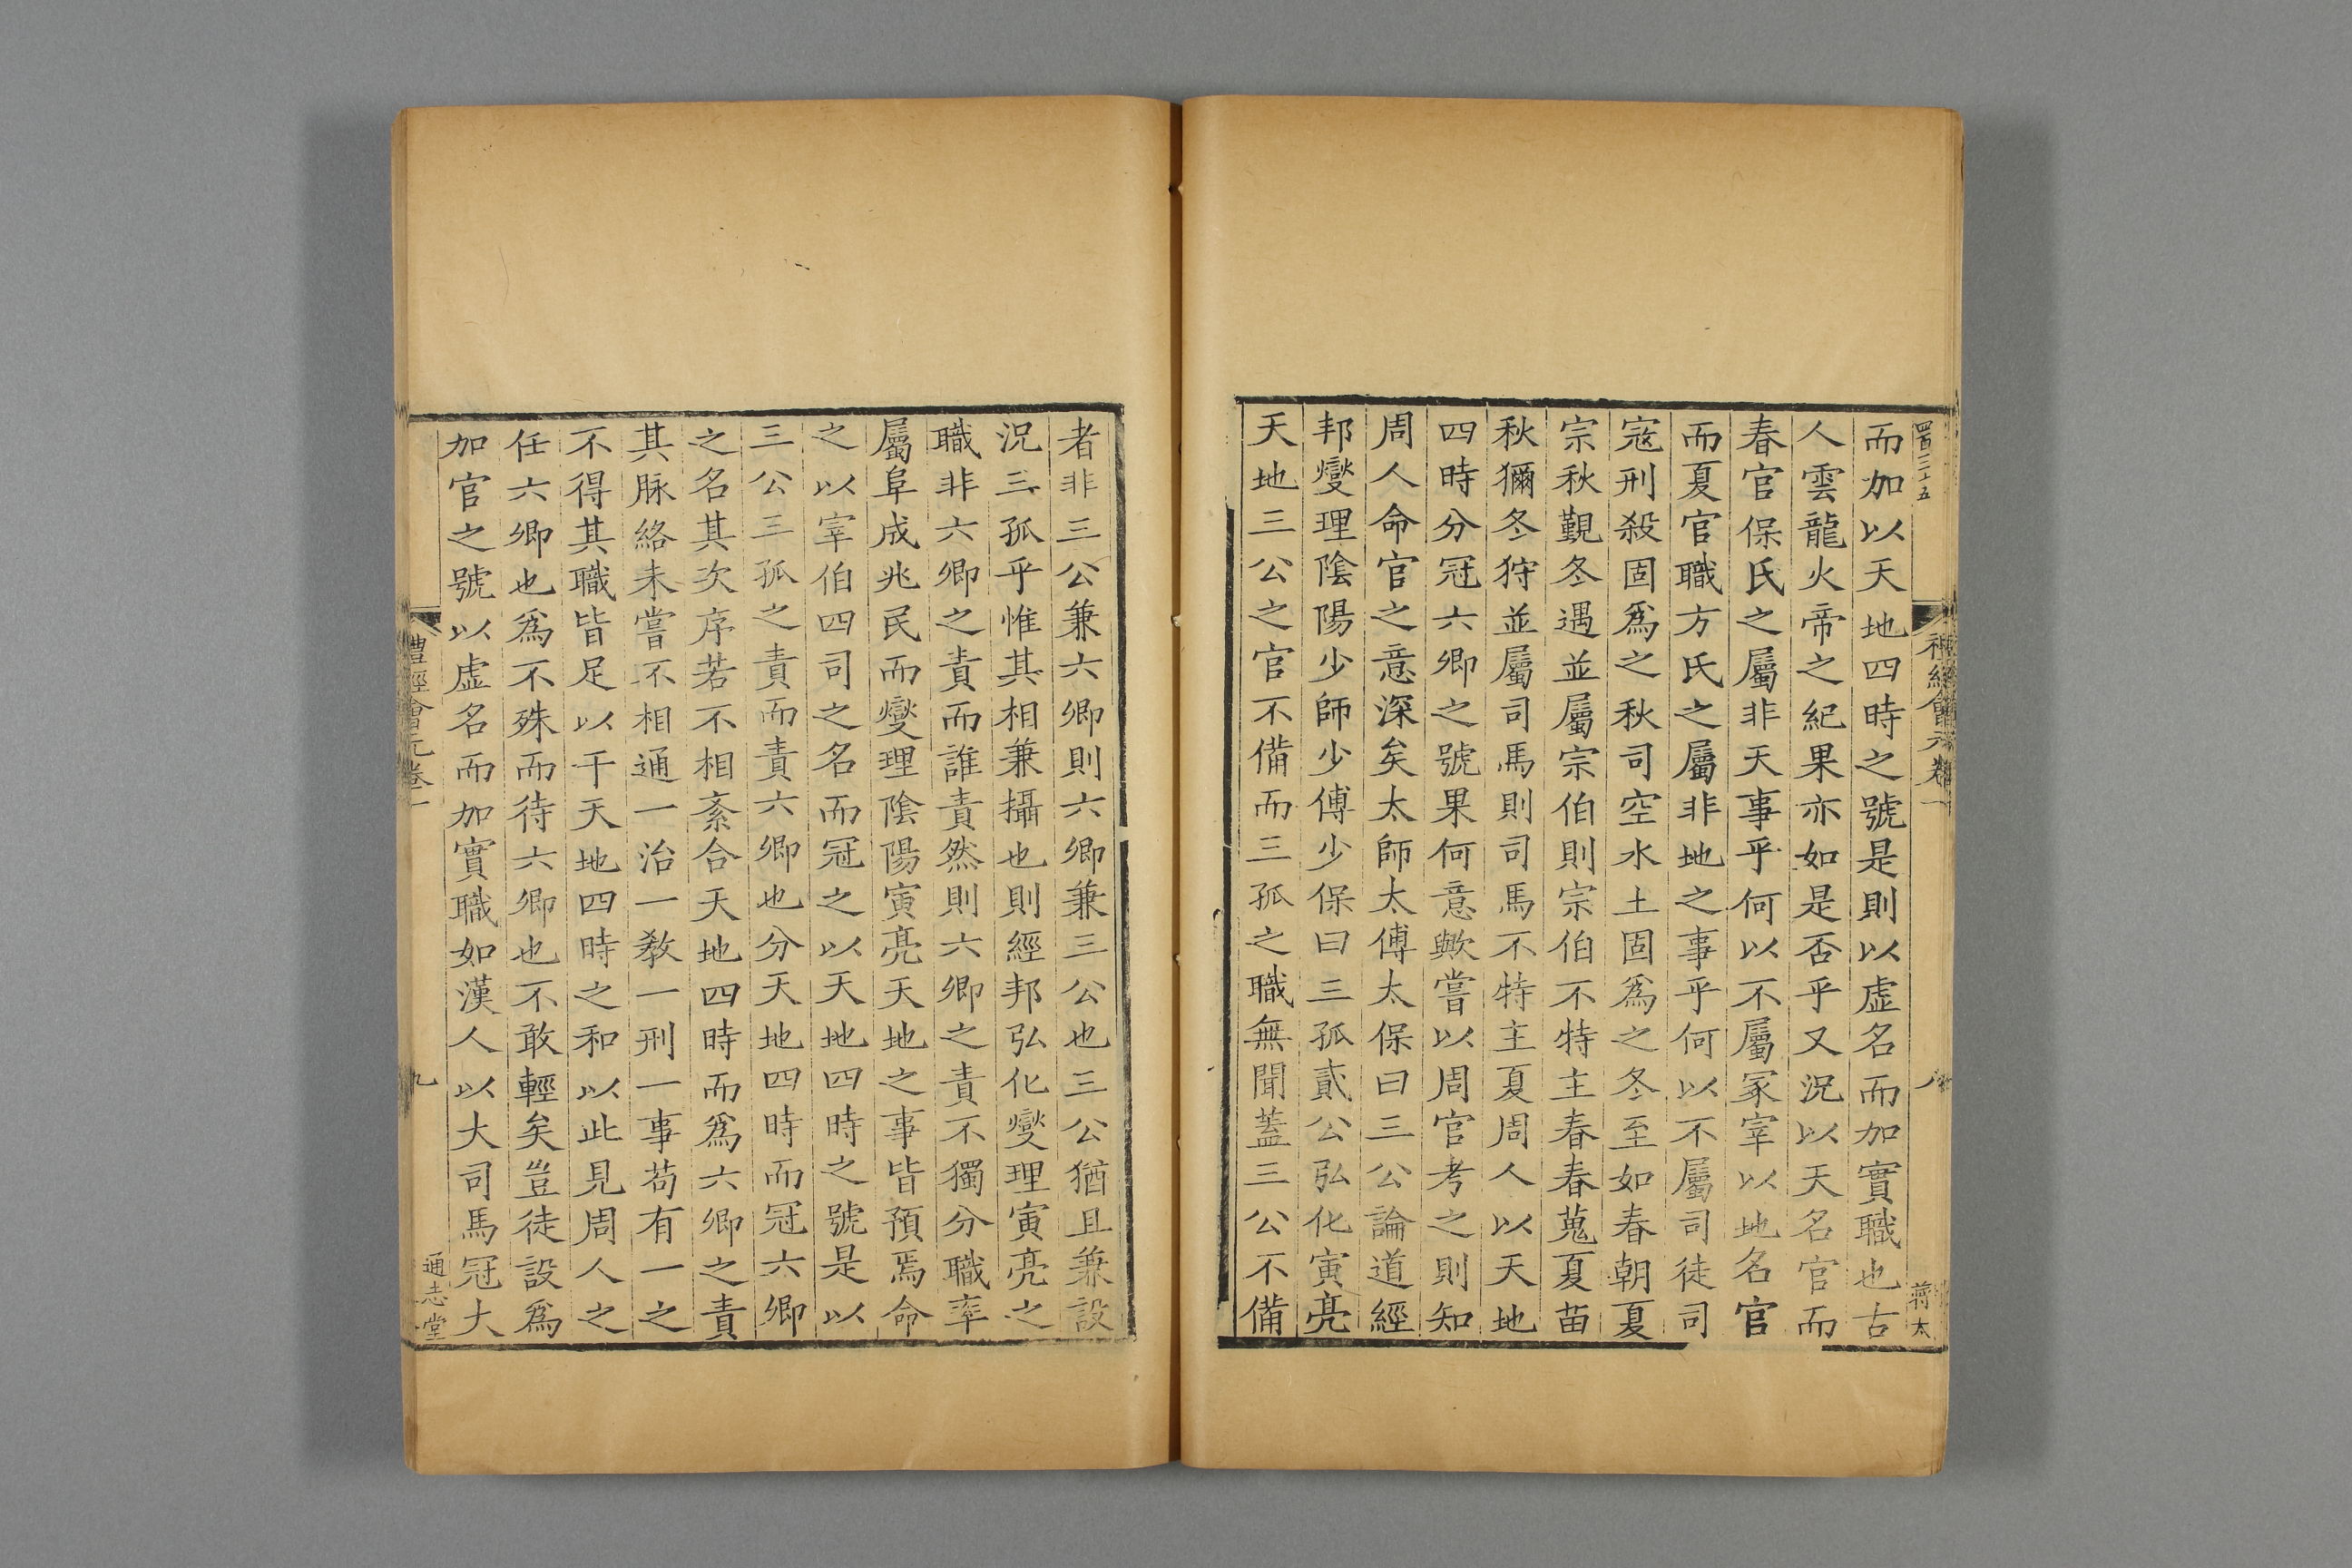 四百二十五
禮經會元卷一
八
蔣太
而加以天地四時之號是則以虛名而加實職也古
人雲龍火帝之紀果亦如是否乎又況以天名官而
春官保氏之屬非天事乎何以不屬冢宰以地名官
而夏官職方氏之屬非地之事乎何以不屬司徒司
寇刑殺固爲之秋司空水土固爲之冬至如春朝夏
宗秋覲冬遇並屬宗伯則宗伯不特主春春蒐夏苗
秋獮冬狩並屬司馬則司馬不特主夏周人以天地
四時分冠六卿之號果何意歟嘗以周官考之則知
周人命官之意深矣太師太傅太保曰三公論道經
邦燮理陰陽少師少傅少保曰三孤貳公弘化寅亮
天地三公之官不備而三孤之職無聞蓋三公不備
者非三公兼六卿則六卿兼三公也三公猶且兼設
況三孤乎惟其相兼攝也則經邦弘化燮理寅亮之
職非六卿之責而誰責然則六卿之責不獨分職率
屬阜成兆民而燮理陰陽寅亮天地之事皆預焉命
之以宰伯四司之名而冠之以天地四時之號是以
三公三孤之責而責六卿也分天地四時而冠六卿
之名其次序若不相紊合天地四時而爲六卿之責
其脉絡未嘗不相通一治一教一刑一事苟有一之
不得其職皆足以干天地四時之和以此見周人之
任六卿也爲不殊而待六卿也不敢輕矣豈徒設爲
加官之號以虛名而加實職如漢人以大司馬冠大
禮經會元卷一
九
通志堂